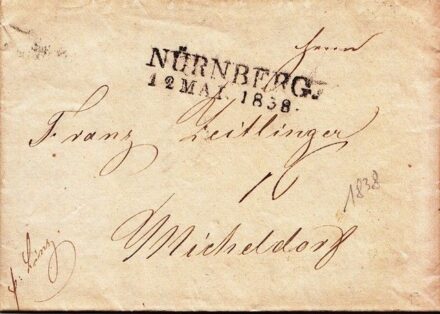 Herrn
NÜRNBERG.
12 MAI. 1838.
Franz Zeitlinger
16
1838
Micheldorf
p. Linz